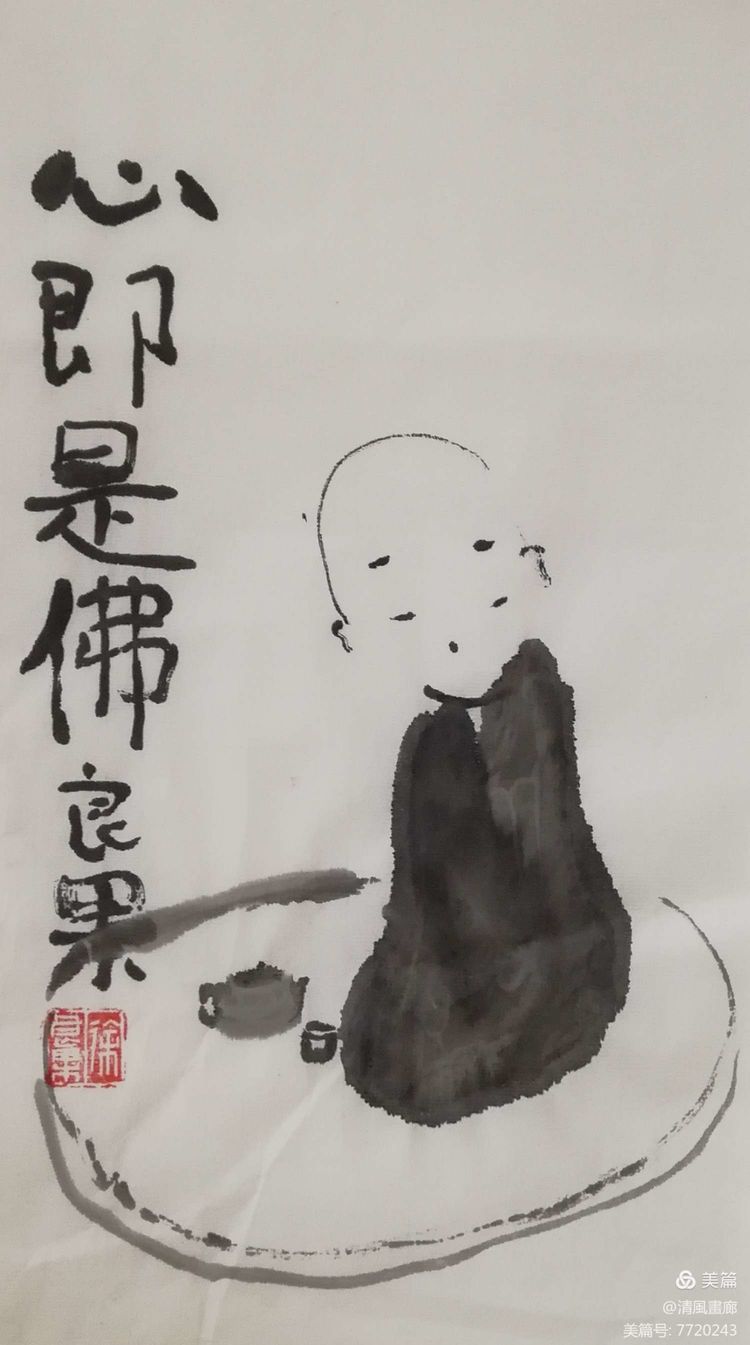 心即是佛
良果
徐良果
美篇
@清風畫廊
美篇号: 7720243